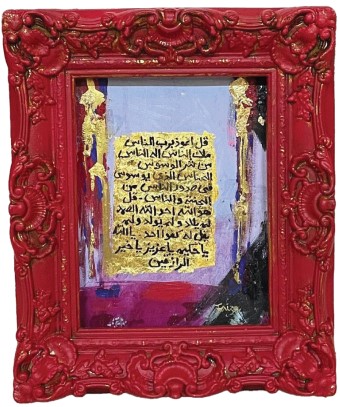 قل اعوذ برب الناس
ملك الناس اله الناس
من شر الوسواس
الخناس الذى يوسوس
فى صدور الناس من
الجنة والناس قل
هو الله احد الله الصمد
لم يلد ولم يولد ولم
يكن له كفوا احد يا الله
يا حليم يا عزيز يا خير
الرازقين